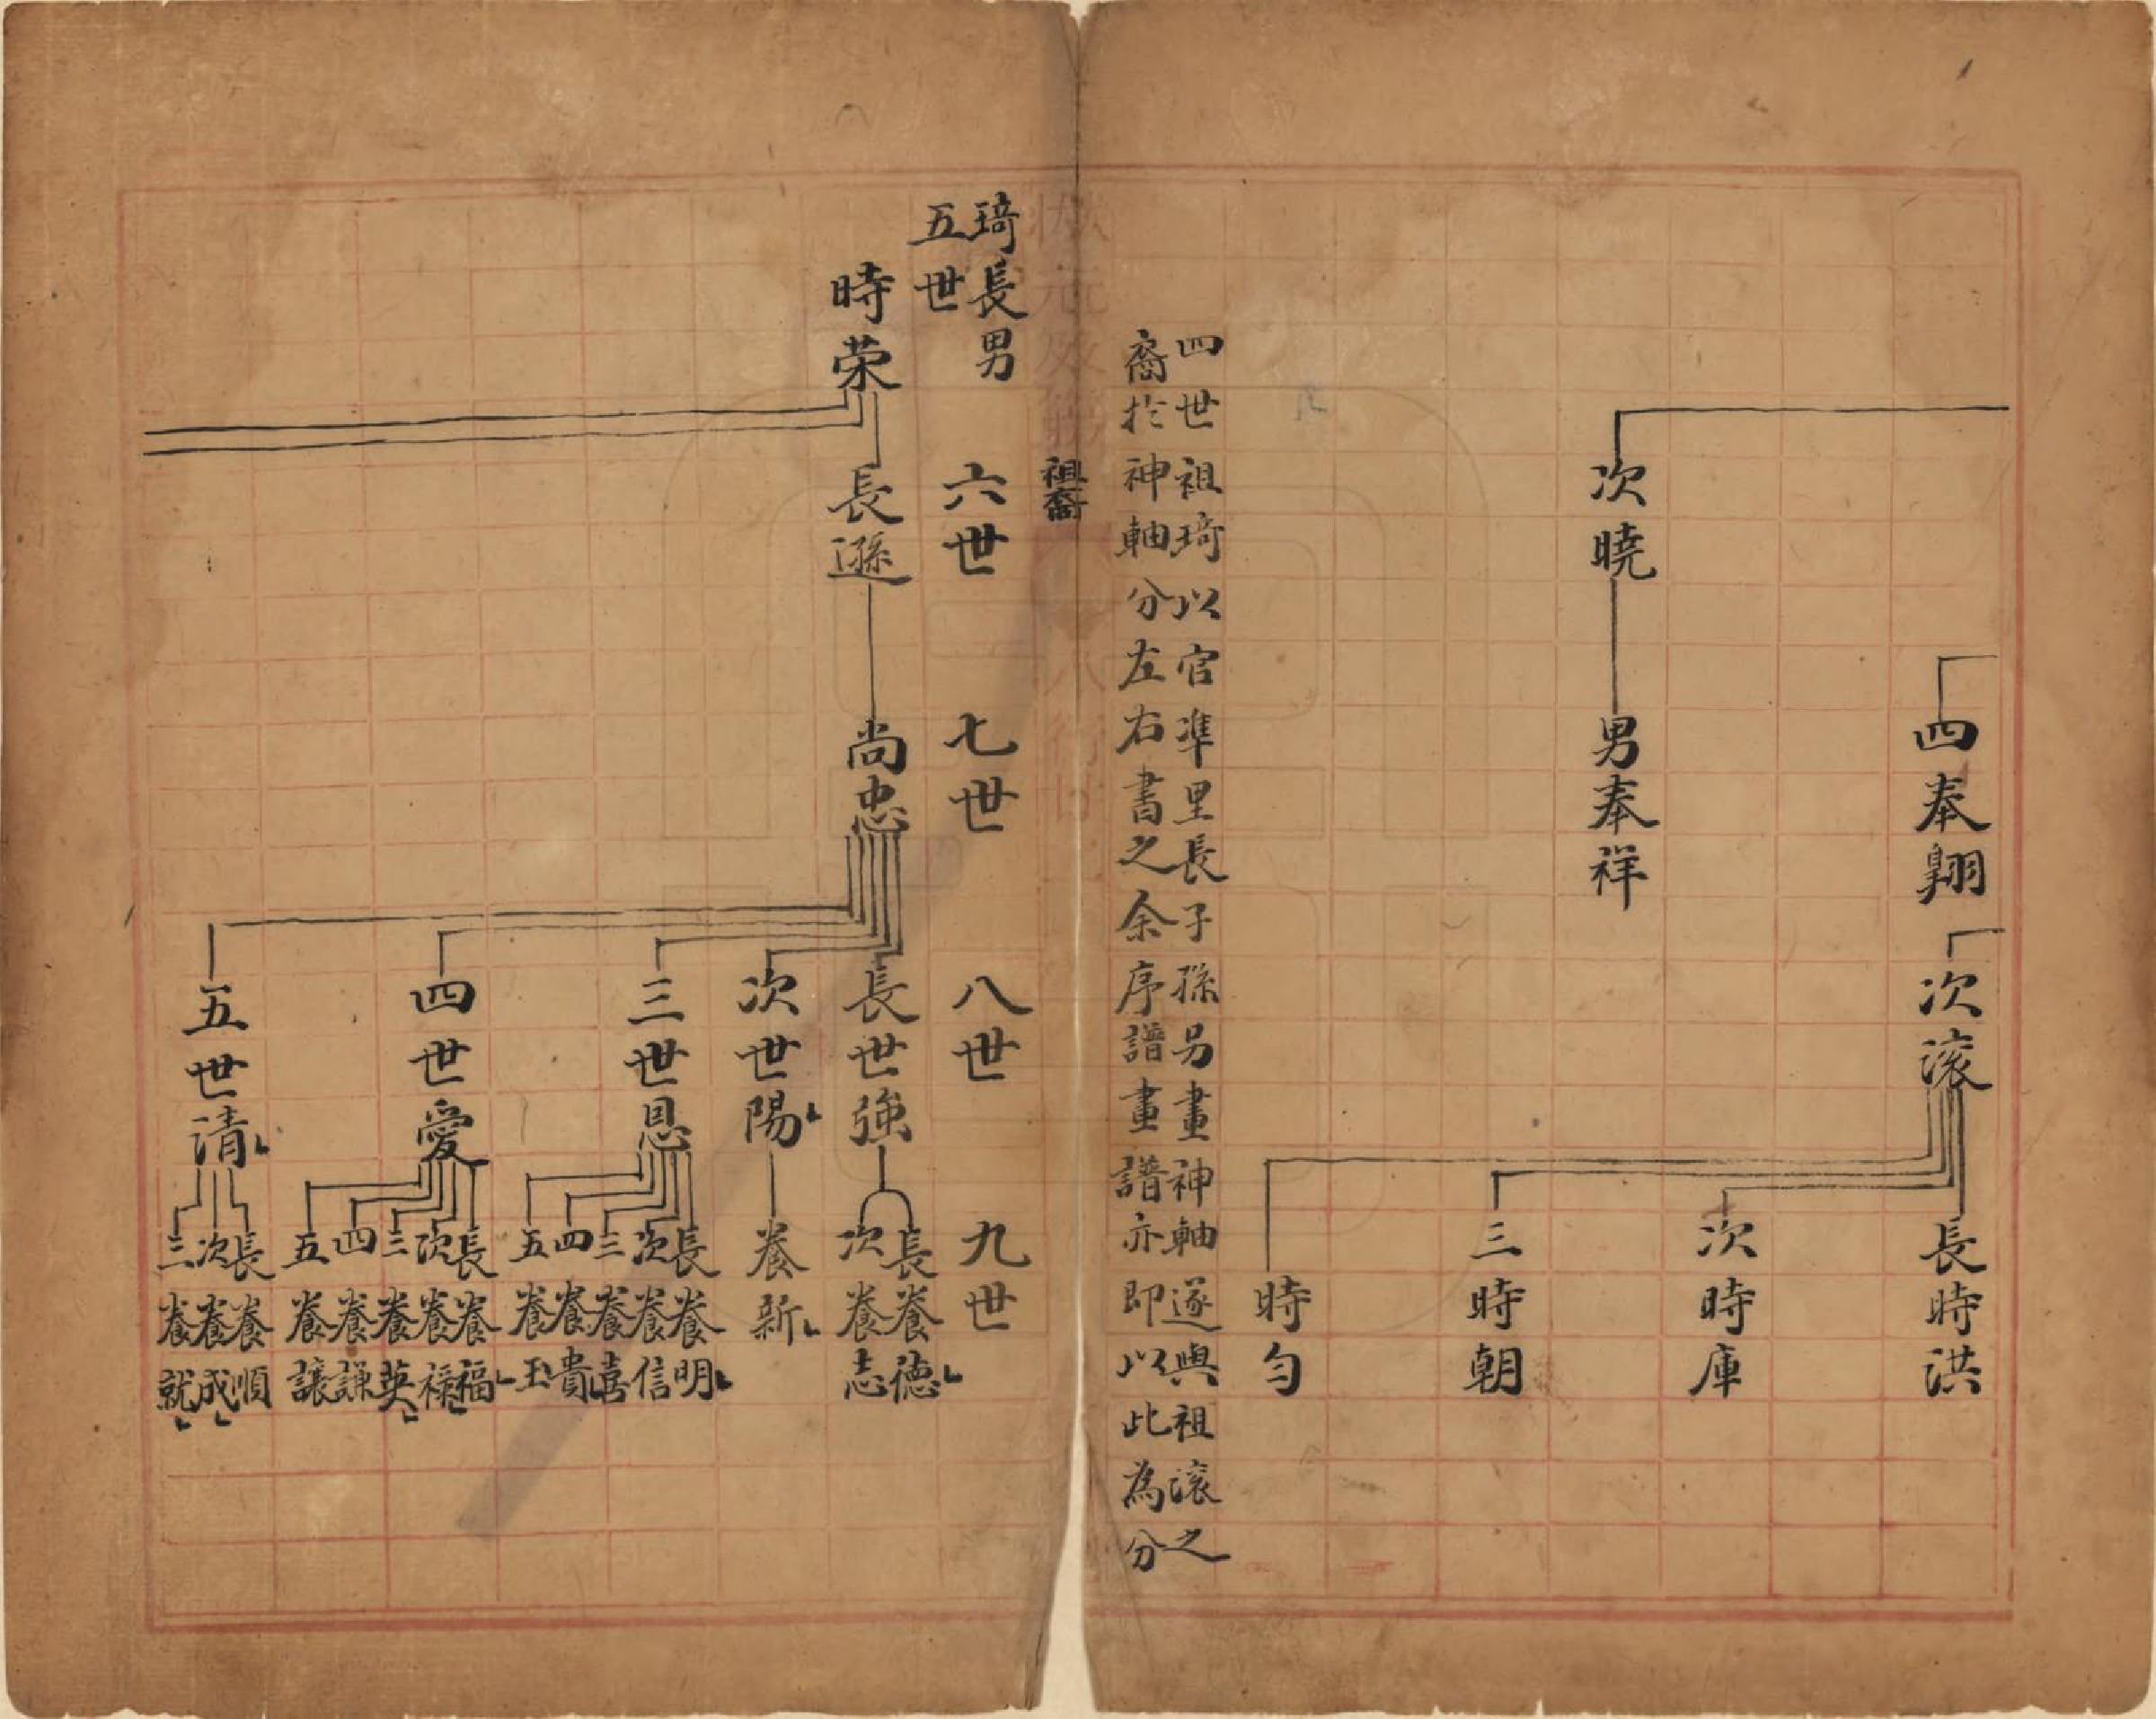 四奉翱
次滚
長時洪
次時庫
三時朝
時勻
次曉
男奉祥
四世祖琦以官準里長子孫另畫神軸遂與祖滚之
裔扵神軸分左右書之余序譜畫譜亦即以此為分
祖裔
琦長男
五世
六世
七世
八世
九世
時荣
長遜
尚忠
長世強
次世陽
三世恩
四世愛
五世清
長養德
次養志
養新
長養明
次養信
三養喜
四養貴
五養玉
長養福
次養祿
三養英
四養謙
五養讓
長養順
次養成
三養就